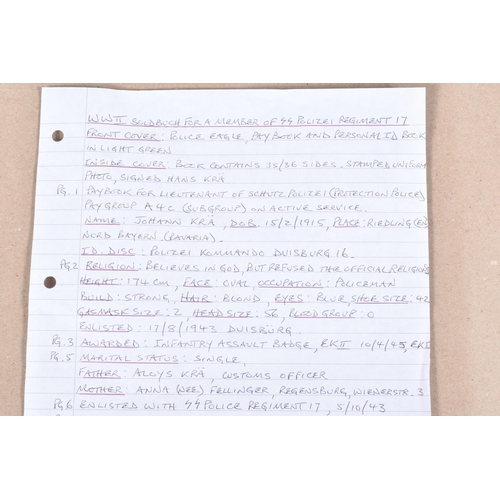 WWII SOLDBUCH FOR A MEMBER OF SS POLIZEI REGIMENT 17
FRONT COVER: POLICE EAGLE, PAYBOOK AND PERSONAL ID BOOK
IN LIGHT GREEN
INSIDE COVER: BOOK CONTAINS 35/36 SIDES. STAMPED UNIFORM
PHOTO, SIGNED HANS KRÄ
PG.1 PAYBOOK FOR LIEUTENANT OF SCHUTZPOLIZEI (PROTECTION POLICE)
PAYGROUP A4C (SUBGROUP) ON ACTIVE SERVICE.
NAME: JOHANN KRÄ, DOB. 15/2/1915, PLACE: RIEDLING (EN
NORD BAYERN (BAVARIA).
I.D. DISC: POLIZEI KOMMANDO DUISBURG 16.
PG2 RELIGION: BELIEVES IN GOD, BUT REFUSED THE OFFICIAL RELIGIONS
HEIGHT: 174 CM, FACE: OVAL, OCCUPATION: POLICEMAN
BUILD: STRONG, HAIR: BLOND, EYES: BLUE, SHOE SIZE: 42
GASMASK SIZE: 2, HEAD SIZE: 56, BLOOD GROUP: O
ENLISTED: 17/8/1943 DUISBURG.
PG.3 AWARDED: INFANTRY ASSAULT BADGE, EKII 10/4/45, EKI
PG.5 MARITAL STATUS: SINGLE,
FATHER: ALOYS KRÄ, CUSTOMS OFFICER
MOTHER: ANNA (NEE) FELLINGER, REGENSBURG, WIENERSTR. 3
PG6 ENLISTED WITH SS POLICE REGIMENT 17, 5/10/43